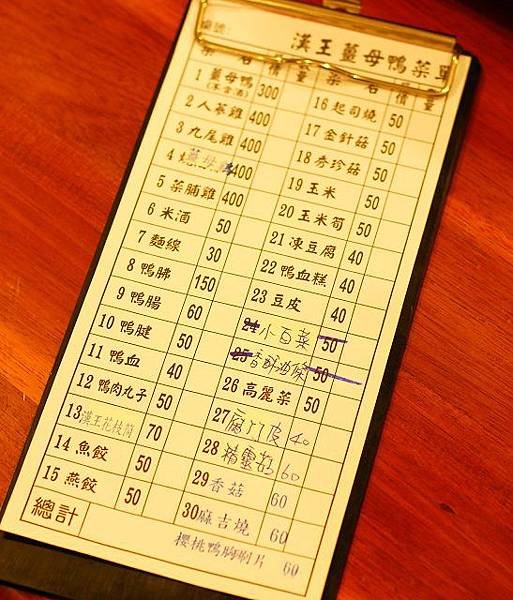 漢王薑母鴨菜單
菜名 價 量 菜名 價 量
1 薑母鴨 (不含酒) 300
2 人蔘雞 400
3 九尾雞 400
4 薑母鴨 400
5 菜脯雞 400
6 米酒 50
7 麵線 30
8 鴨腱 150
9 鴨腸 60
10 鴨腱 50
11 鴨血 40
12 鴨肉丸子 50
13 漢王花枝筒 70
14 魚餃 50
15 燕餃 50
總計
16 起司燒 50
17 金針菇 50
18 秀珍菇 50
19 玉米 50
20 玉米筍 50
21 凍豆腐 40
22 鴨血糕 40
23 豆皮 40
24 小白菜 50
25 香酥油條 50
26 高麗菜 50
27 腐竹皮 40
28 精靈菇 60
29 香菇 60
30 麻吉燒 60
櫻桃鴨胸刷片 60